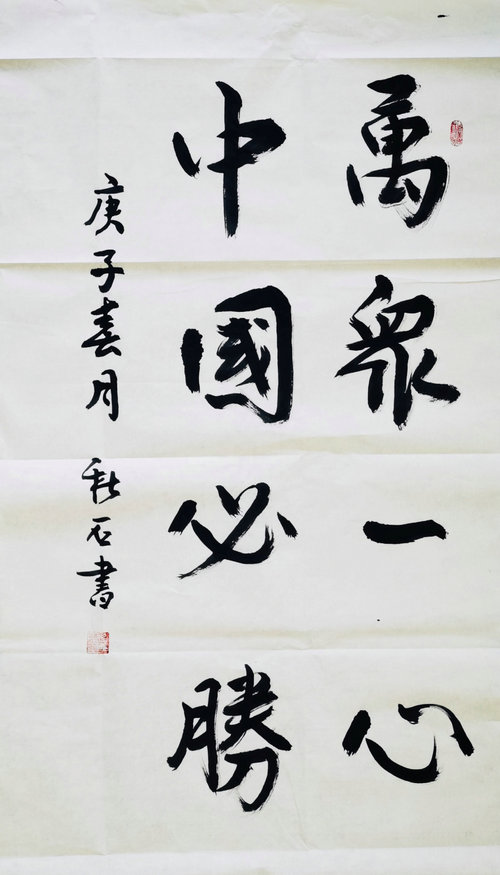 萬衆一心
中國必勝
庚子春月 秋石書